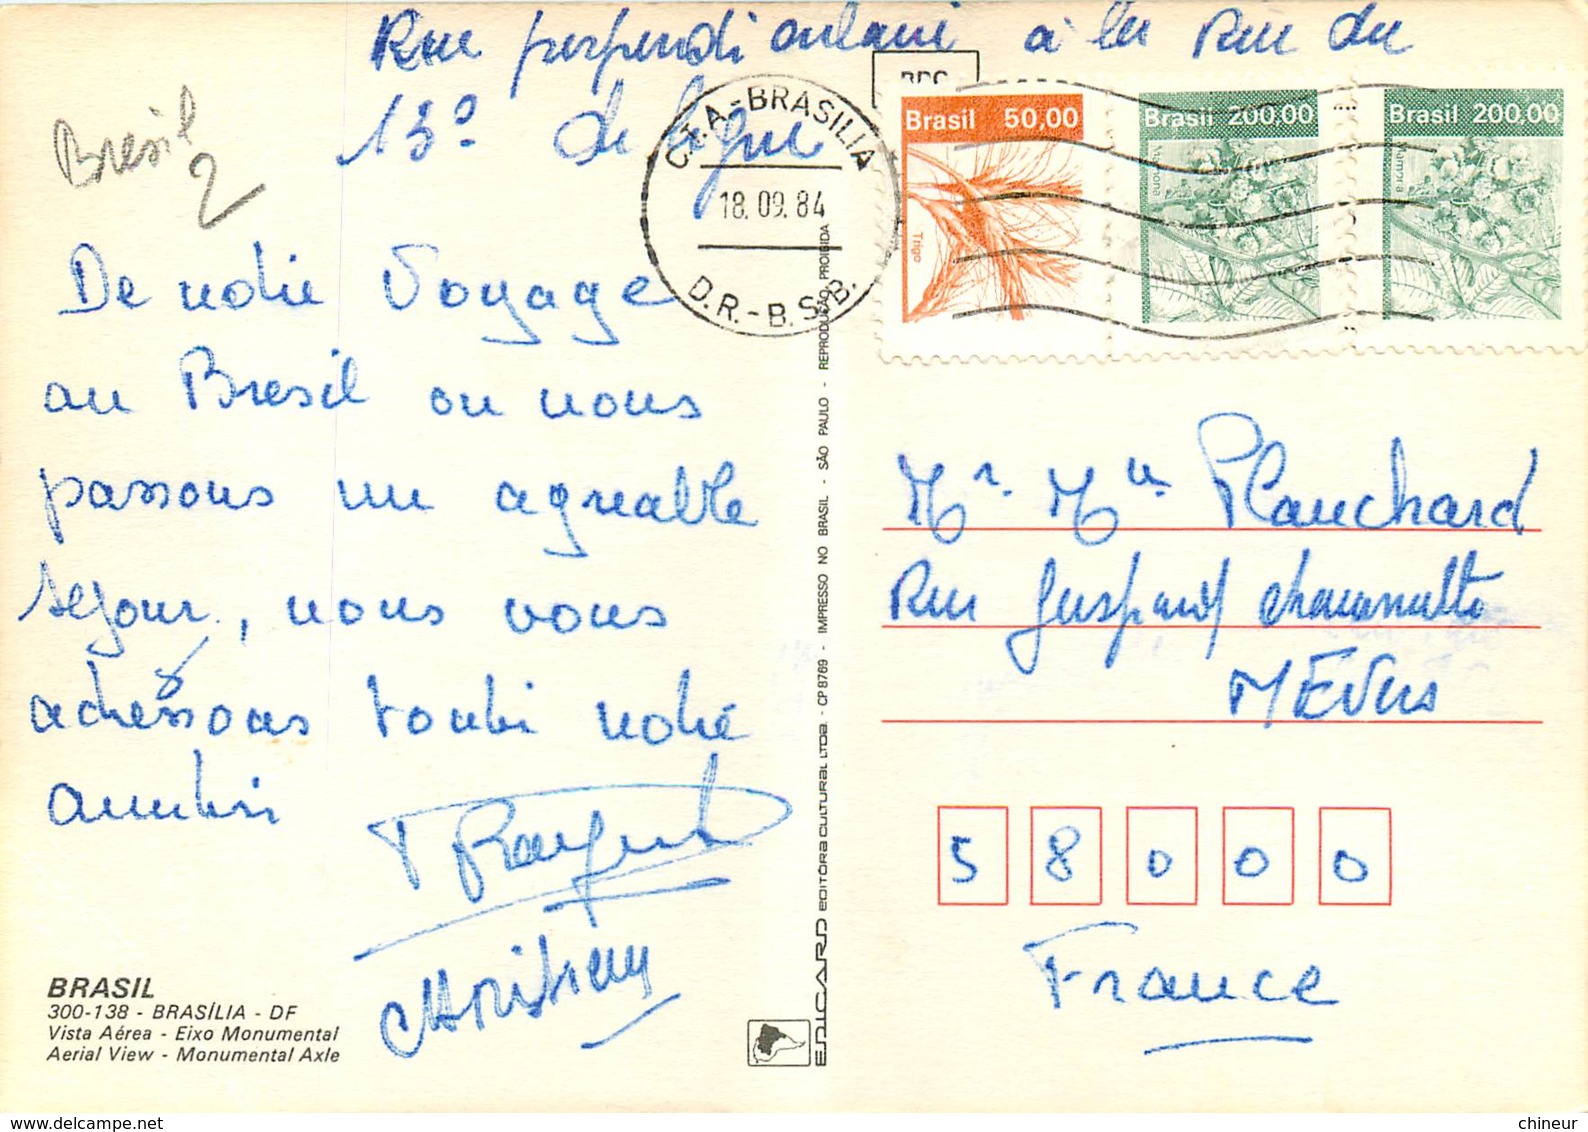 Rue perpendiculaire à la Rue du
13º de ligne
Bresil
2
De notre Voyage
au Bresil ou nous
passons un agreable
sejour, nous vous
adressons toute notre
amitié
Christian
BRASIL
300-138 - BRASÍLIA - DF
Vista Aérea - Eixo Monumental
Aerial View - Monumental Axle
EDICARD EDITORA CULTURAL LTDA. - CP 8769 - IMPRESSO NO BRASIL - SÃO PAULO - REPRODUÇÃO PROIBIDA
C.T.A.-BRASILIA
18.09.84
D.R.-B.S.B.
Brasil 50,00
Trigo
Brasil 200,00
Mamona
Brasil 200,00
Mamona
Mr. Mme Planchard
Rue Gaspard
NEVERS
58000
France
chineur